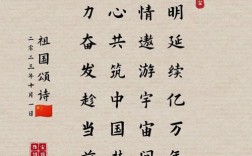 明延续亿万年
情遨游宇宙间
心共筑中国
力奋发趁当前
祖国颂诗
二零二三年十月一日